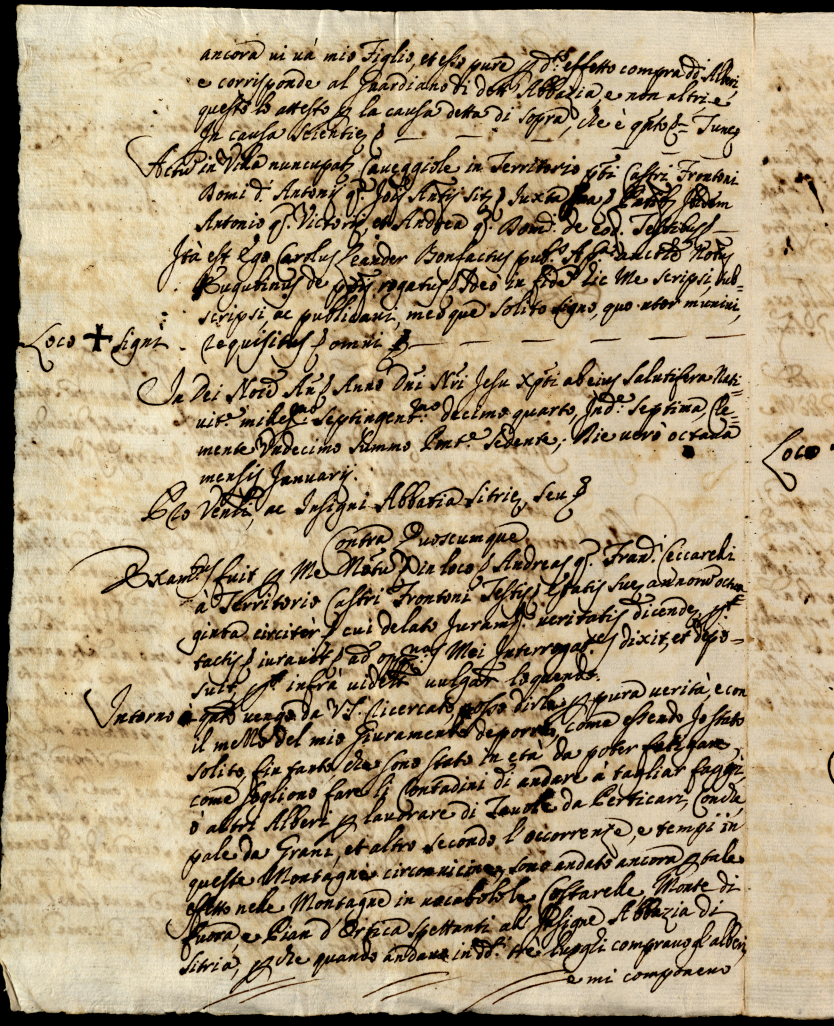 ancora vi và mio Figlio, et esso pure p d.º effetto compra dd. Alberi
e corrisponde al Guardiano di detta Abbazia e non altri e
questo lo attesto p la causa detta di sopra, che è q.to &= Tunc
In causa scientiez &
Actu in Villa nuncupat Caveggiole in Territorio Castri Frontoni
Domi d. Antonij q. Juxta
Antonio q. Victorij, et Andrea q. Dom. de eod. Testibus
Ità est Ego Carolus Leander Bonfactius pub.s Ap.ca auctte Not.s
Eugubinus de rogatus Ideo in fide hic Me scripsi, sub=
scripsi ac publicavi, meoque solito signo, quo utor munivi,
Loco + signi requisitus omni
In Dei No͞e Am. Anno Dni Nri Jesu Xpti ab eius salutifera Nati
vit.e millesmo septingent.mo decimo quarto, Ind.e septima, Cle=
mente Undecimo summo Pont.e sedente; Die verò octava
mensis Januarij.
Pro Venli, ac Insigni Abbatia Sitriez, seu &
Contra Quoscumque
Exam.tus fuit p Me Not.m in loco Andreas q. Fran.d Ceccarelli
à Territorio Castri Frontoni Testis etatis suez annorum octua=
ginta circitèr cui delato Juram.o veritatis dicendez
tactis iuravit ad Mei Interrogat.es dixit, et depo=
suit, infrà vidett vulgari loquendo.
Intorno à q.to vengo da V.S. ricercato posso dirle p pura verità, e con
il mezzo del mio Giuramento deporre, come essendo Io stato
solito fin tanto che sono stato in età da poter fatigare,
come sogliono fare li Contadini di andare à tagliar faggi,
ò altri Alberi p lavorare di Tavole da Perticari, Conche,
pale da Grani, et altro secondo l'occorrenze, e tempi in
queste Montagne circonvicine, sono andato ancora p tale
effetto nelle Montagne in vocabolo le Costarelle, Monte di
fuora e Pian d'Ortica spettanti all'Insigne Abbazia di
Sitria, p che quando andavo in dd. tre luoghi compravo gl'alberi,
e mi componevo
Loco